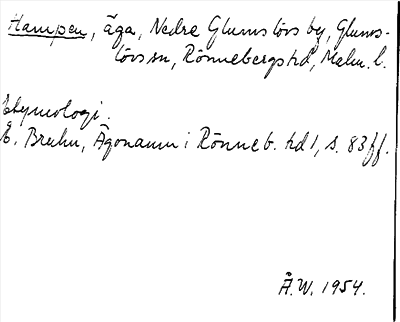 Hampen, äga, Nedre Glumslövs by, Glums-
lövs sn, Rönnebergs hd, Malm. l.
Etymologi.
E. Bruhn, Ägonamn i Rönneb. hd 1, s. 83 ff.
Ä.W. 1954.